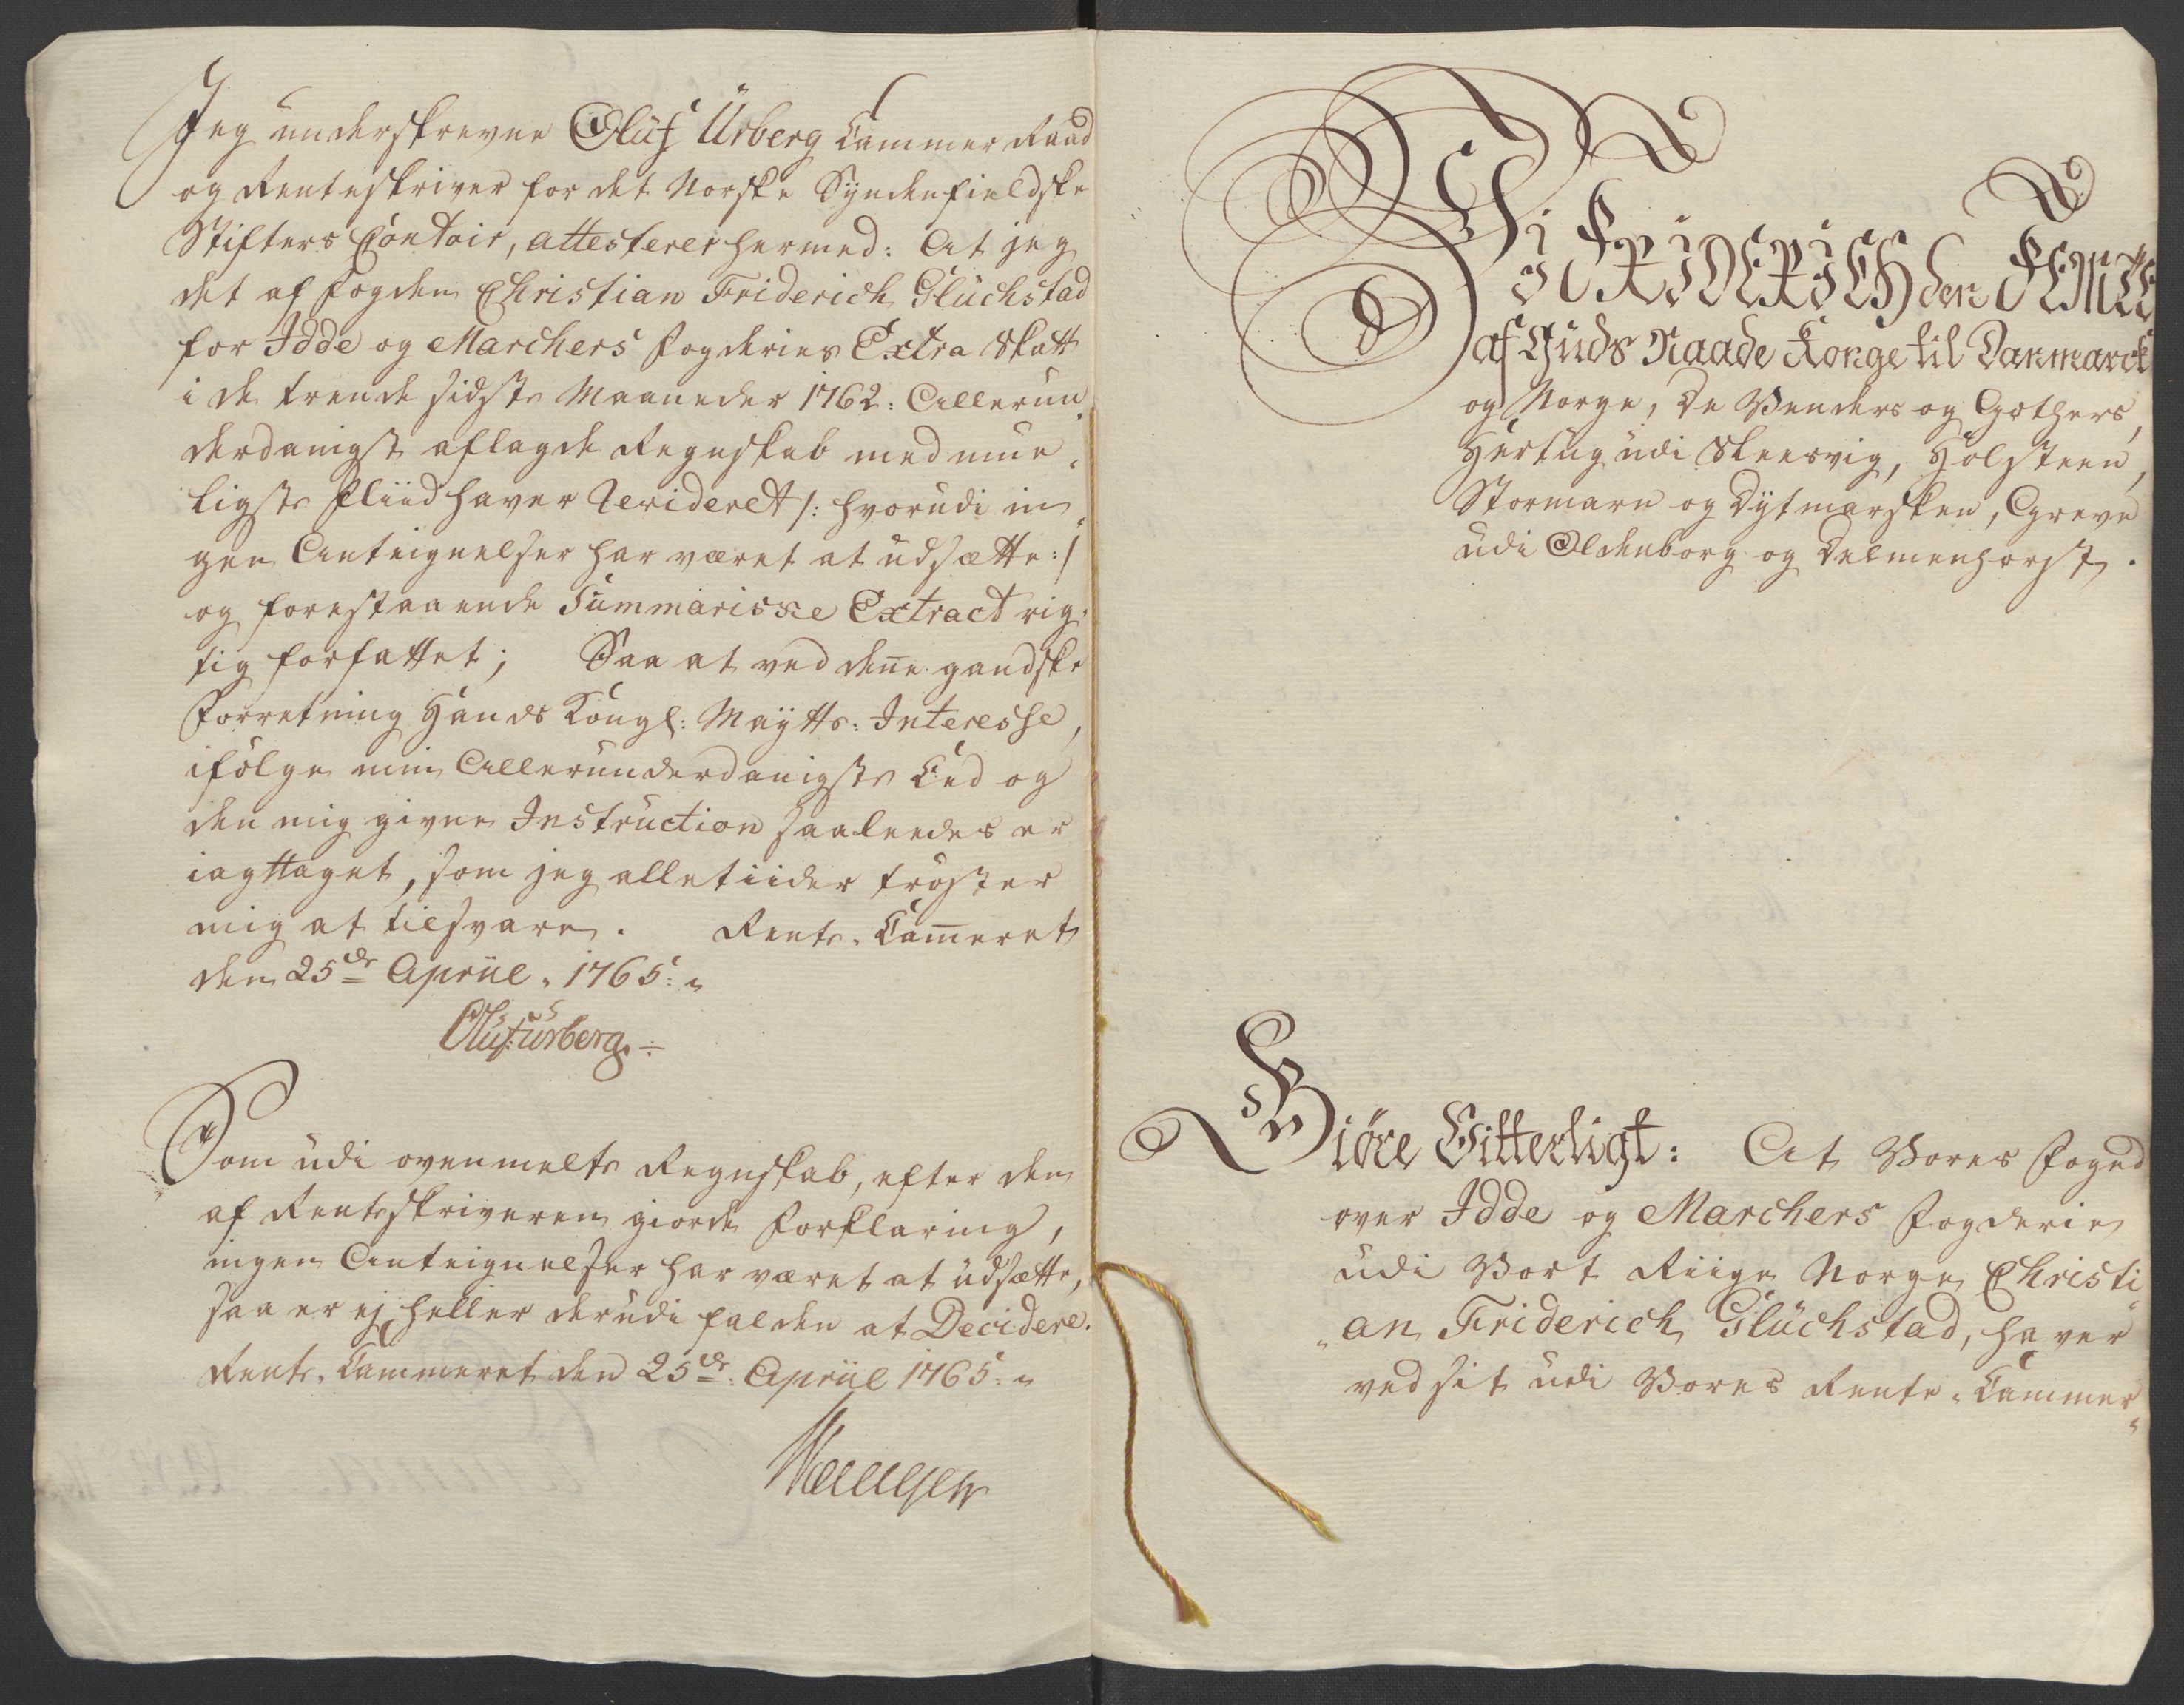 Jeg underskrevne Oluf Urberg Cammer Raad
og Renteskriver for det Norske Syndenfieldske
Stifters Contoir, attesterer hermed: At jeg
det af Fogden Christian Friderich Glüchstad
for Idde og Marchers Fogderies Extra Skatt
i de trende sidste Maaneder 1762: Allerun
derdanigst aflagde Regnskab med mue„
ligste Fliid haver Revideret /: hvorudi in„
gen Anteignelser har været at udsætte:/
og forestaaende Summariske Extract rig„
tig forfattet; Saa at ved denne gandske
Forretning Hands Kongl: Maytts: Interesse,
ifölge min Allerunderdanigste Eed og
den mig givne Instruction saaleedes er
iagttaget, som jeg alletiider tröster
mig at tilsvare. Rente-Cammeret
den 25de Apriil. 1765.
Oluf: Urberg.
Som udi ovenmelte Regnskab, efter den
af Renteskriveren giorde Forklaring,
ingen Anteignelser har været at udsætte,
saa er ej heller derudi falden at Decidere.
Rente-Cammeret den 25de: Apriil 1765.
Vi FRIDERICH den FEMTE
af Guds Naade Konge til Danmarck
og Norge, De Venders og Gothers,
Hertug udi Sleesvig, Holsteen,
Stormarn og Dytmarsken, Greve
udi Oldenborg og Delmenhorst.
Giöre Vitterligt: At Vores Foged
over Idde og Marchers Fogderie
udi Vort Riige Norge, Christi„
„an Friderich Glüchstad, haver
ved sit udi Vores Rente-Cammer„